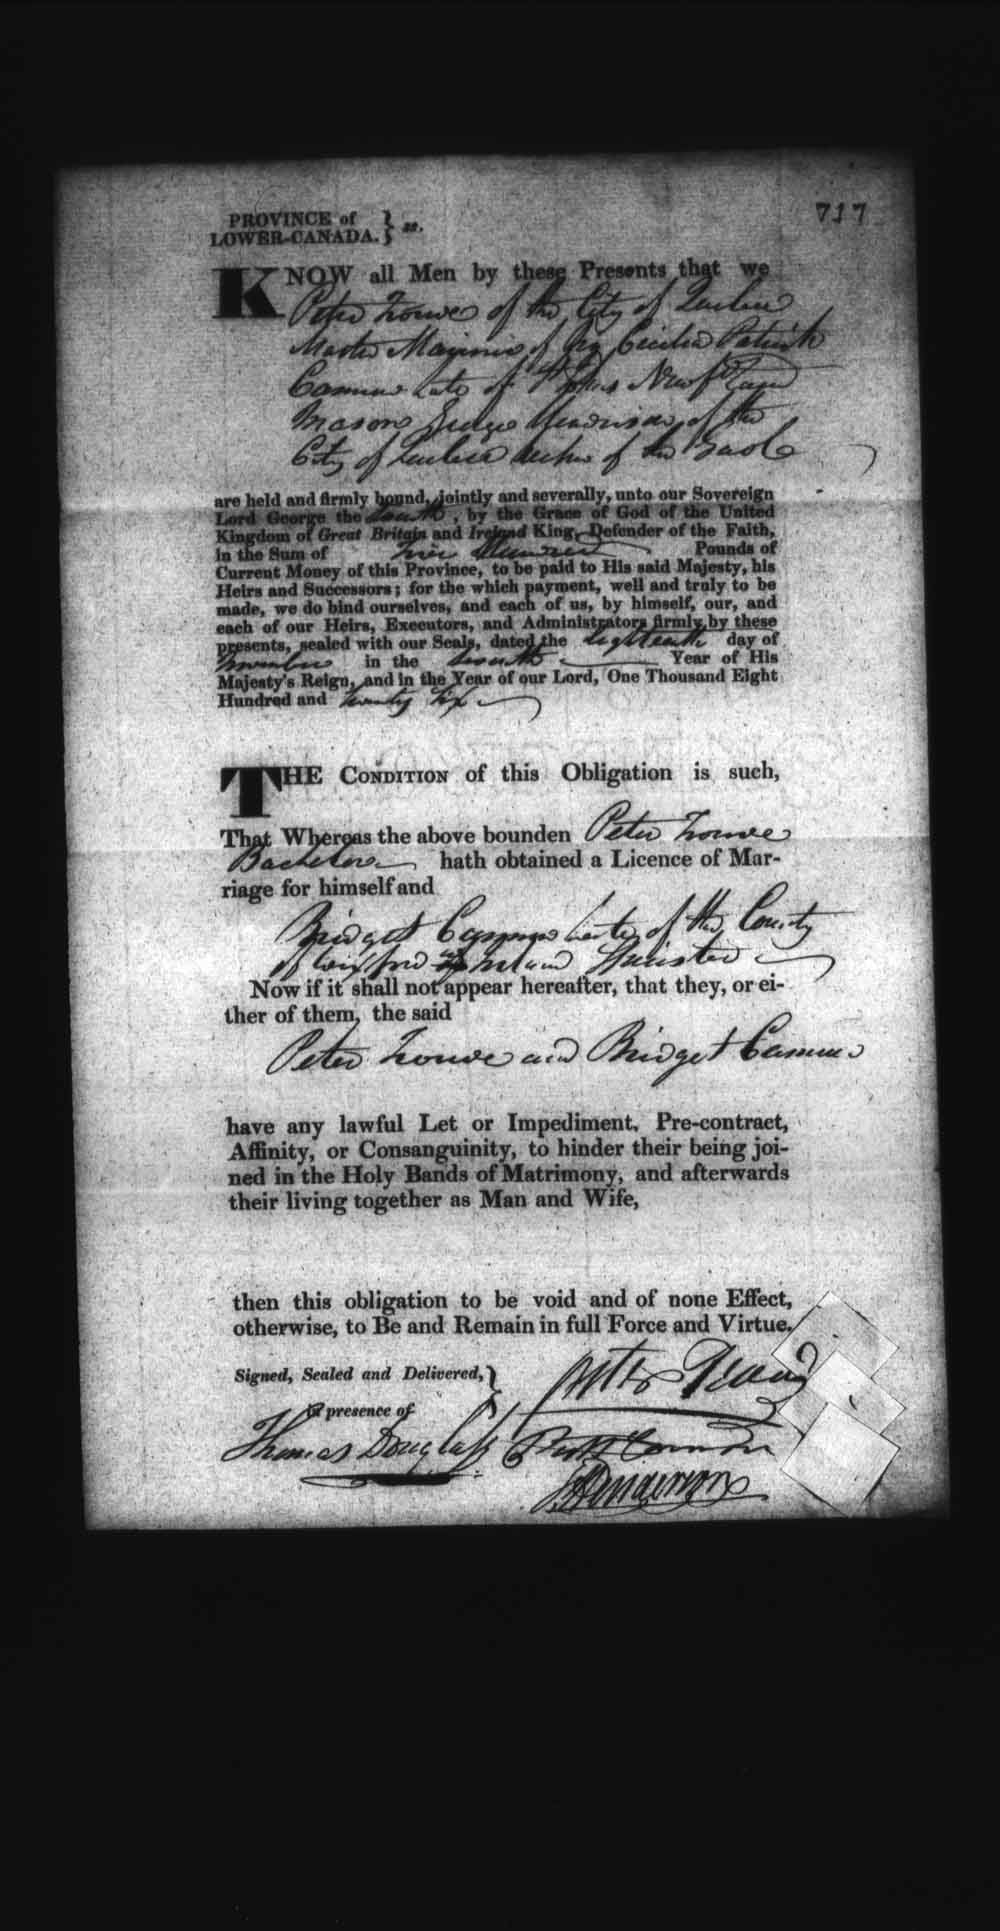 717
PROVINCE of
LOWER-CANADA. } ss.
KNOW all Men by these Presents that we
Peter of the City of Quebec
Master of Cecilia Patrick
late of St Johns Newfld
Mason George of the
City of Quebec of the Gaol
are held and firmly bound, jointly and severally, unto our Sovereign
Lord George the fourth, by the Grace of God of the United
Kingdom of Great Britain and Ireland King, Defender of the Faith,
in the Sum of Hundred Pounds of
Current Money of this Province, to be paid to His said Majesty, his
Heirs and Successors; for the which payment, well and truly to be
made, we do bind ourselves, and each of us, by himself, our, and
each of our Heirs, Executors, and Administrators firmly by these
presents, sealed with our Seals, dated the Eighteenth day of
November in the seventh Year of His
Majesty's Reign, and in the Year of our Lord, One Thousand Eight
Hundred and twenty six
THE CONDITION of this Obligation is such,
That Whereas the above bounden Peter
Bachelor hath obtained a Licence of Mar-
riage for himself and
Bridget late of the County
of Wexford Ireland Spinster
Now if it shall not appear hereafter, that they, or ei-
ther of them, the said
Peter and Bridget
have any lawful Let or Impediment, Pre-contract,
Affinity, or Consanguinity, to hinder their being joi-
ned in the Holy Bands of Matrimony, and afterwards
their living together as Man and Wife,
then this obligation to be void and of none Effect,
otherwise, to Be and Remain in full Force and Virtue.
Signed, Sealed and Delivered, }
in presence of
Peter
Thomas Douglass